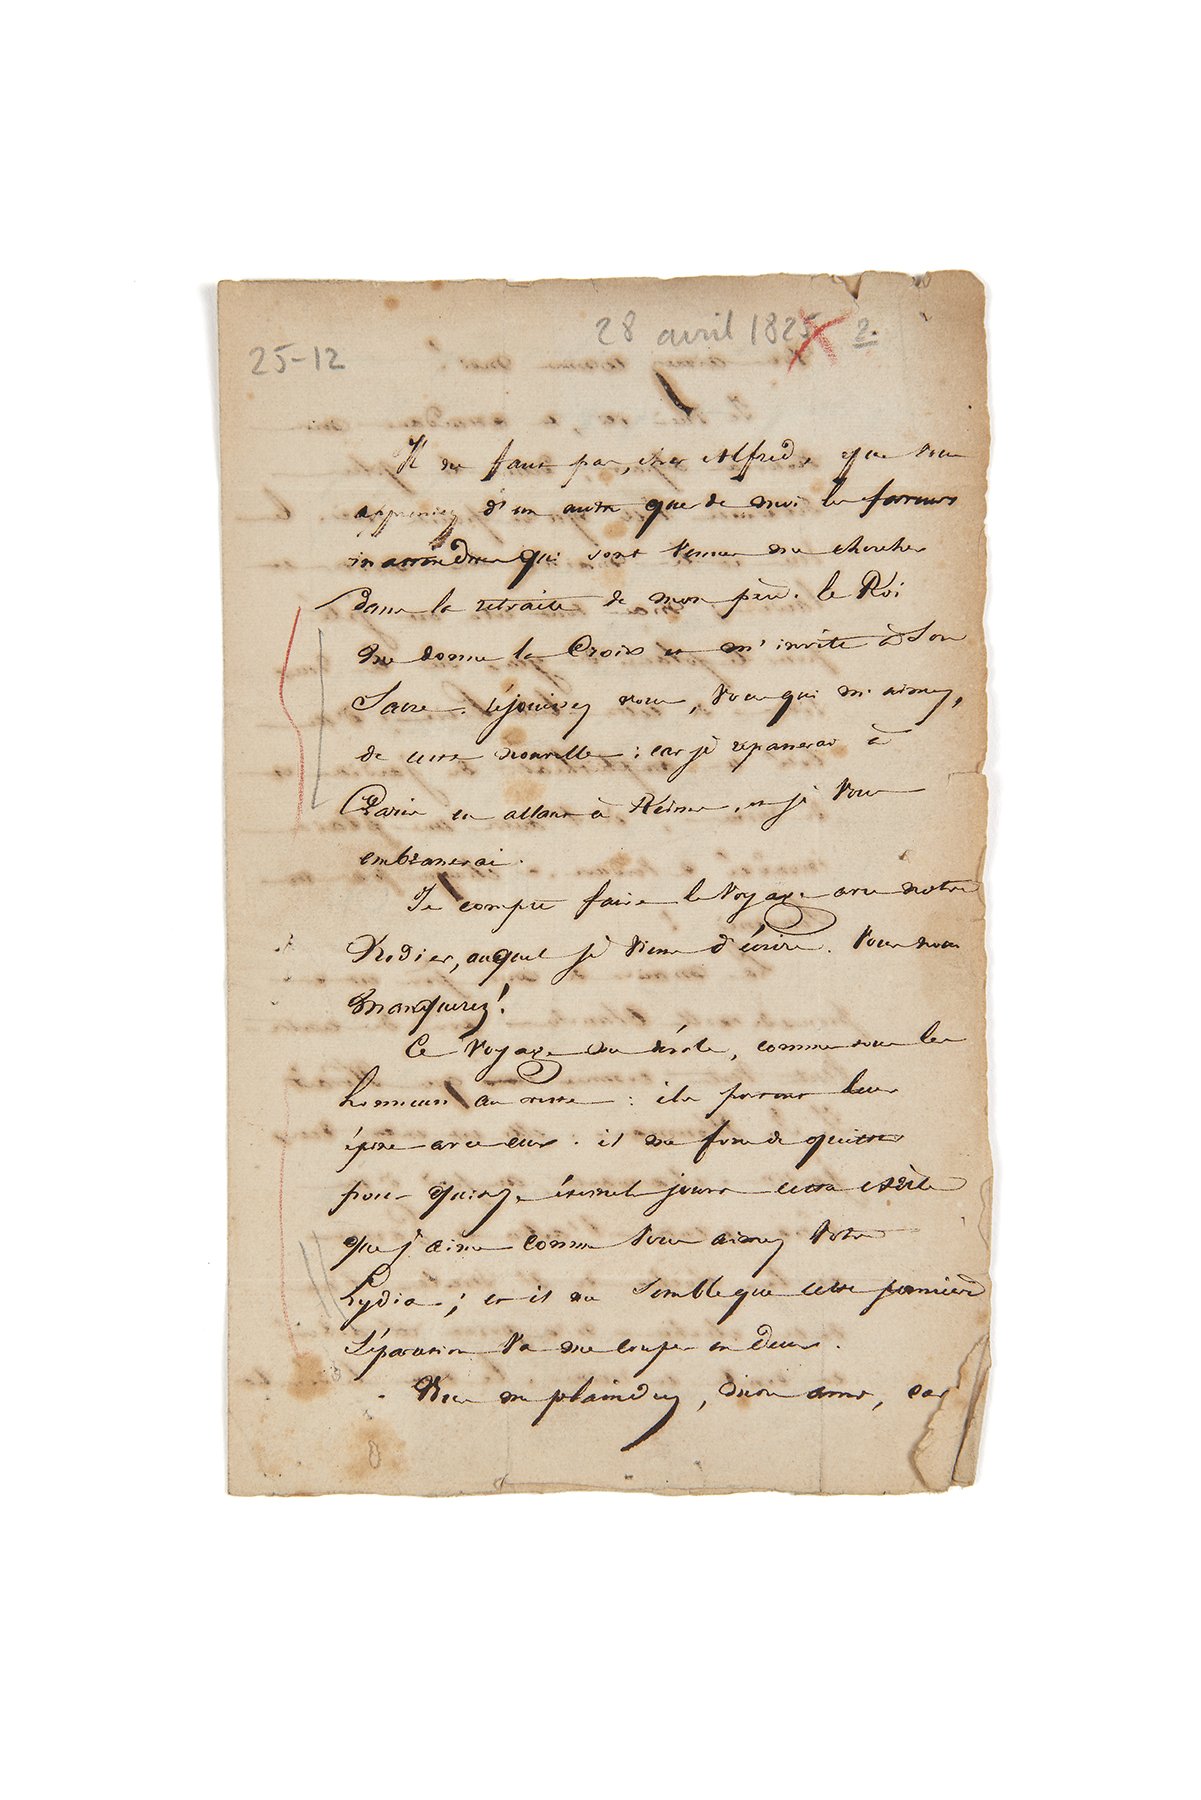 28 avril 1825 2.
25-12
Il ne faut pas, cher Alfred, que vous
appreniez d'un autre que de moi les faveurs
inattendues qui sont venues me chercher
dans la retraite de mon père. le Roi
me donne la Croix et m'invite à son
Sacre. réjouissez vous, vous qui m'aimez,
de cette nouvelle : car je repasserai à
Paris en allant à Reims, et je vous
embrasserai.
Je compte faire le voyage avec notre
Nodier, auquel je viens d'écrire. Vous nous
manquerez!
Ce voyage me désole, comme tous les
honneurs au reste : ils portent leur
épine avec eux. il me faudra quitter
pour quinze éternels jours cette
que j'aime comme vous aimez votre
Lydia ; et il me semble que cette première
séparation va me couper en deux.
Vous me plaindrez, mon ami, car